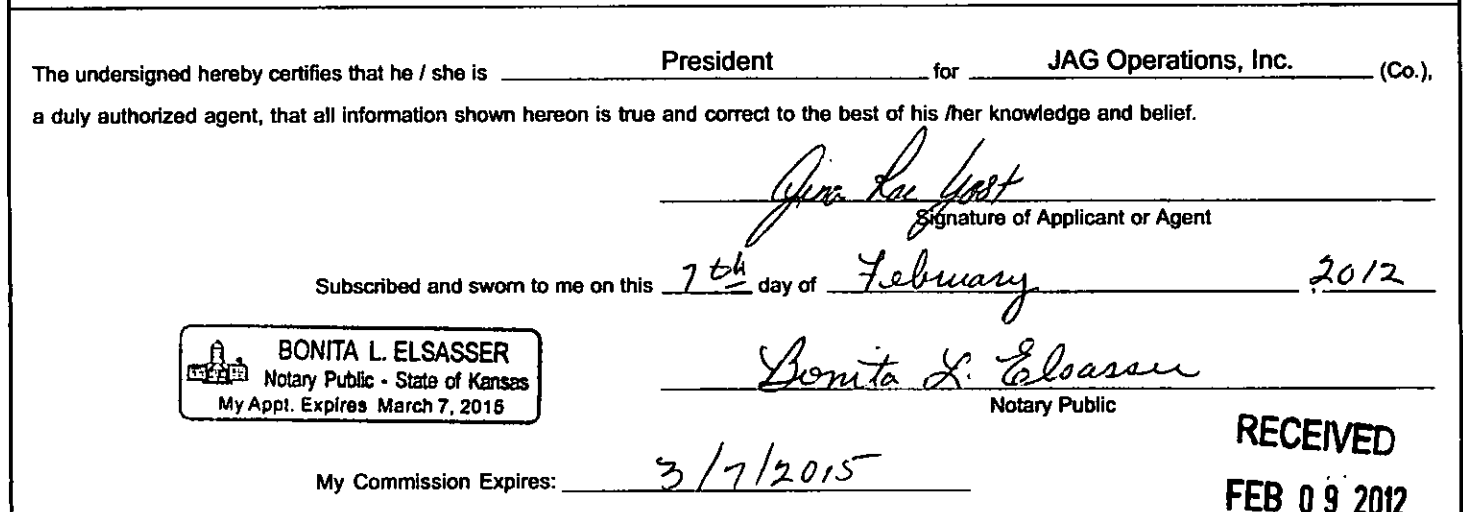 The undersigned hereby certifies that he / she is President for JAG Operations, Inc. (Co.),
a duly authorized agent, that all information shown hereon is true and correct to the best of his /her knowledge and belief.
Gina Rae Yost
Signature of Applicant or Agent
Subscribed and sworn to me on this 7th day of February 2012
BONITA L. ELSASSER
Notary Public - State of Kansas
My Appt. Expires March 7, 2015
Bonita L. Elsasser
Notary Public
My Commission Expires: 3/7/2015
RECEIVED
FEB 09 2012